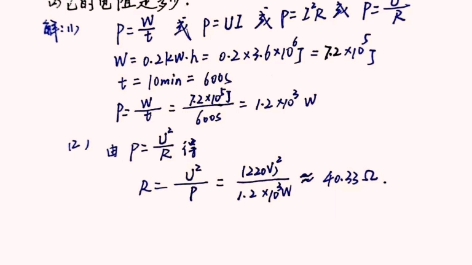 它的电阻是多少?
解:(1) P=W/t 或 P=UI 或 P=I²R 或 P=U²/R
W=0.2kW·h=0.2×3.6×10⁶J=7.2×10⁵J
t=10min=600s
P=W/t=7.2×10⁵J/600s=1.2×10³W
(2) 由P=U²/R得
R=U²/P=(220V)²/1.2×10³W≈40.33Ω.